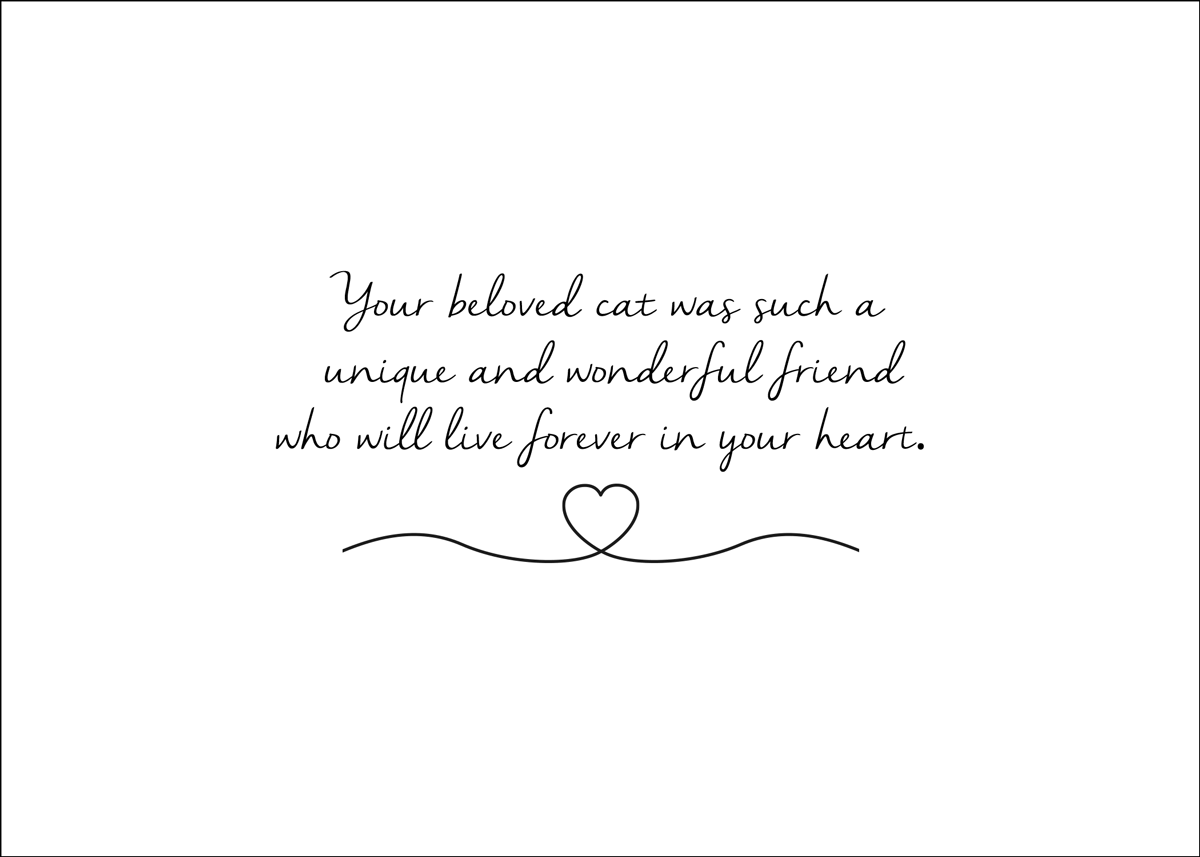 Your beloved cat was such a
unique and wonderful friend
who will live forever in your heart.